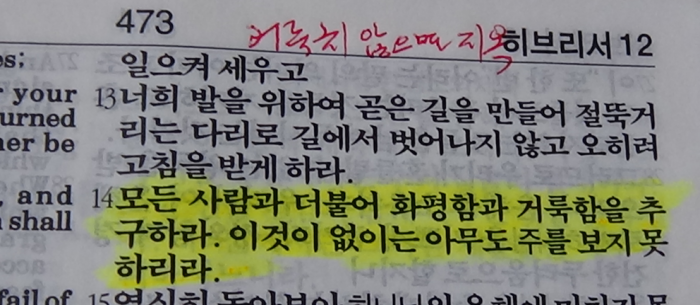 473 거룩치 않으면 지옥 히브리서 12
일으켜 세우고
your 13너희 발을 위하여 곧은 길을 만들어 절뚝거
urned 리는 다리로 길에서 벗어나지 않고 오히려
er be 고침을 받게 하라.
and 14모든 사람과 더불어 화평함과 거룩함을 추
shall 구하라. 이것이 없이는 아무도 주를 보지 못
하리라.
fail of 15열심히 돌아보아 하나님의 은혜에